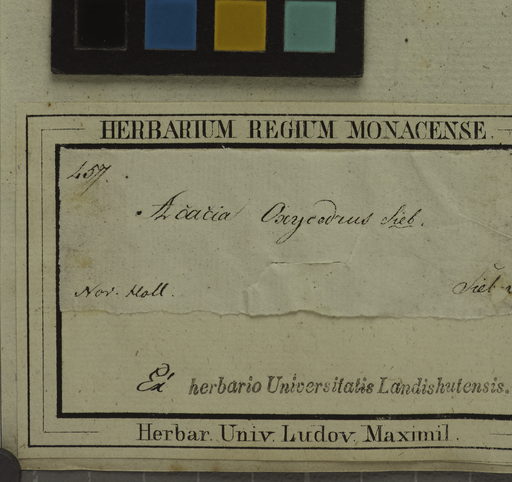 HERBARIUM REGIUM MONACENSE.
457.
Acacia Oxycedrus Sieb.
Nov. Holl.
Sieb
Ex herbario Universitatis Landishutensis.
Herbar. Univ. Ludov. Maximil.